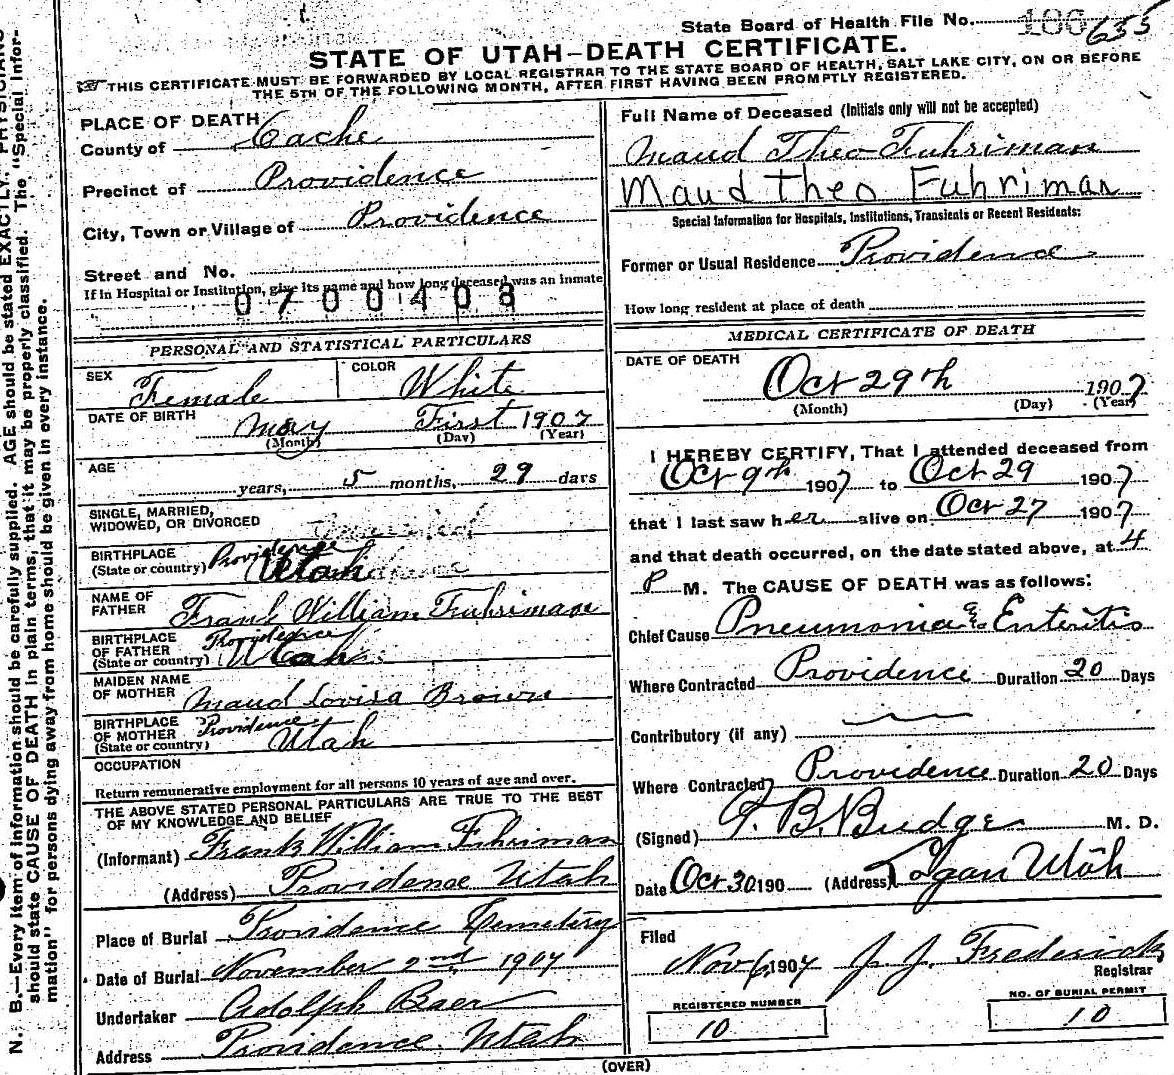 State Board of Health File No. 186 635
STATE OF UTAH—DEATH CERTIFICATE.
THIS CERTIFICATE MUST BE FORWARDED BY LOCAL REGISTRAR TO THE STATE BOARD OF HEALTH, SALT LAKE CITY, ON OR BEFORE
THE 5TH OF THE FOLLOWING MONTH, AFTER FIRST HAVING BEEN PROMPTLY REGISTERED.
PLACE OF DEATH
County of Cache
Precinct of Providence
City, Town or Village of Providence
Street and No.
If in Hospital or Institution, give its name and how long deceased was an inmate
0700408
PERSONAL AND STATISTICAL PARTICULARS
SEX Female COLOR White
DATE OF BIRTH May First 1907
(Month) (Day) (Year)
AGE
years, 5 months, 29 days
SINGLE, MARRIED,
WIDOWED, OR DIVORCED
BIRTHPLACE
(State or country) Providence Utah
NAME OF
FATHER Frank William Fuhriman
BIRTHPLACE
OF FATHER
(State or country) Providence Utah
MAIDEN NAME
OF MOTHER Maud Lovisa Brown
BIRTHPLACE
OF MOTHER
(State or country) Providence Utah
OCCUPATION
Return remunerative employment for all persons 10 years of age and over.
THE ABOVE STATED PERSONAL PARTICULARS ARE TRUE TO THE BEST
OF MY KNOWLEDGE AND BELIEF
(Informant) Frank William Fuhriman
(Address) Providence Utah
Place of Burial Providence Cemetery
Date of Burial November 2nd 1907
Undertaker Adolph Baer
Address Providence Utah
Full Name of Deceased (Initials only will not be accepted)
Maud Theo Fuhriman
Maud Theo Fuhriman
Special Information for Hospitals, Institutions, Transients or Recent Residents:
Former or Usual Residence Providence
How long resident at place of death
MEDICAL CERTIFICATE OF DEATH
DATE OF DEATH
Oct 29th 1907
(Month) (Day) (Year)
I HEREBY CERTIFY, That I attended deceased from
Oct 9th 1907 to Oct 29 1907
that I last saw her alive on Oct 27 1907
and that death occurred, on the date stated above, at 4
P M. The CAUSE OF DEATH was as follows:
Chief Cause Pneumonia & Enteritis
Where Contracted Providence Duration 20 Days
Contributory (if any)
Where Contracted Providence Duration 20 Days
(Signed) T. B. Budge M. D.
Date Oct 30 190 (Address) Logan Utah
Filed
Nov 6, 1907 J. J. Frederick
Registrar
REGISTERED NUMBER
10
NO. OF BURIAL PERMIT
10
(OVER)
N. B.—Every item of information should be carefully supplied. AGE should be stated EXACTLY. PHYSICIANS
should state CAUSE OF DEATH in plain terms, that it may be properly classified. The "Special Infor-
mation" for persons dying away from home should be given in every instance.